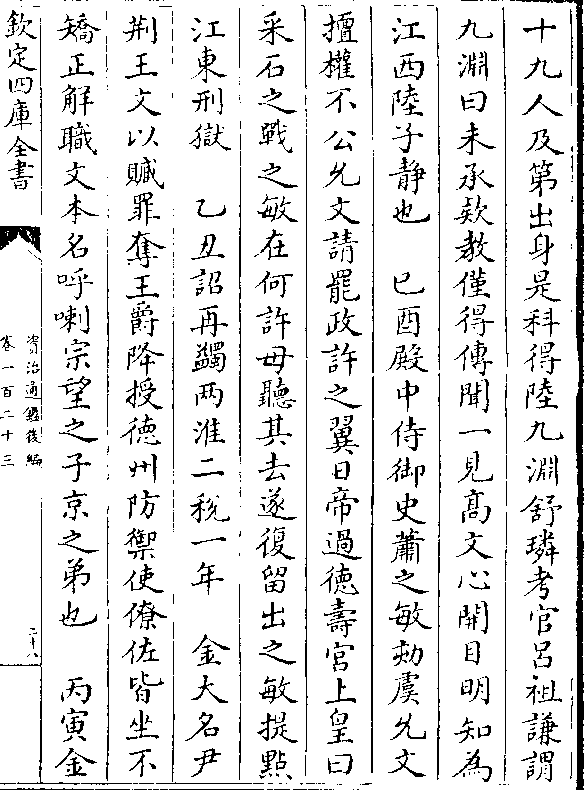 十九人及第出身是科得陸九淵舒璘考官呂祖謙謂
九淵曰未承欵教僅得傳聞一見髙文心開目明知為
江西陸子靜也　已酉殿中侍御史蕭之敏劾虞允文
擅權不公允文請罷政許之翼日帝過德壽宮上皇曰
采石之戰之敏在何許毋聽其去遂復留出之敏提點
江東刑獄　乙丑詔再蠲兩淮二税一年　金大名尹
荆王文以贓罪奪王爵降授德州防禦使僚佐皆坐不
矯正解職文本名呼喇宗望之子京之弟也　丙寅金
欽定四庫全書
資治通鑑後編
卷一百二十三
二十八